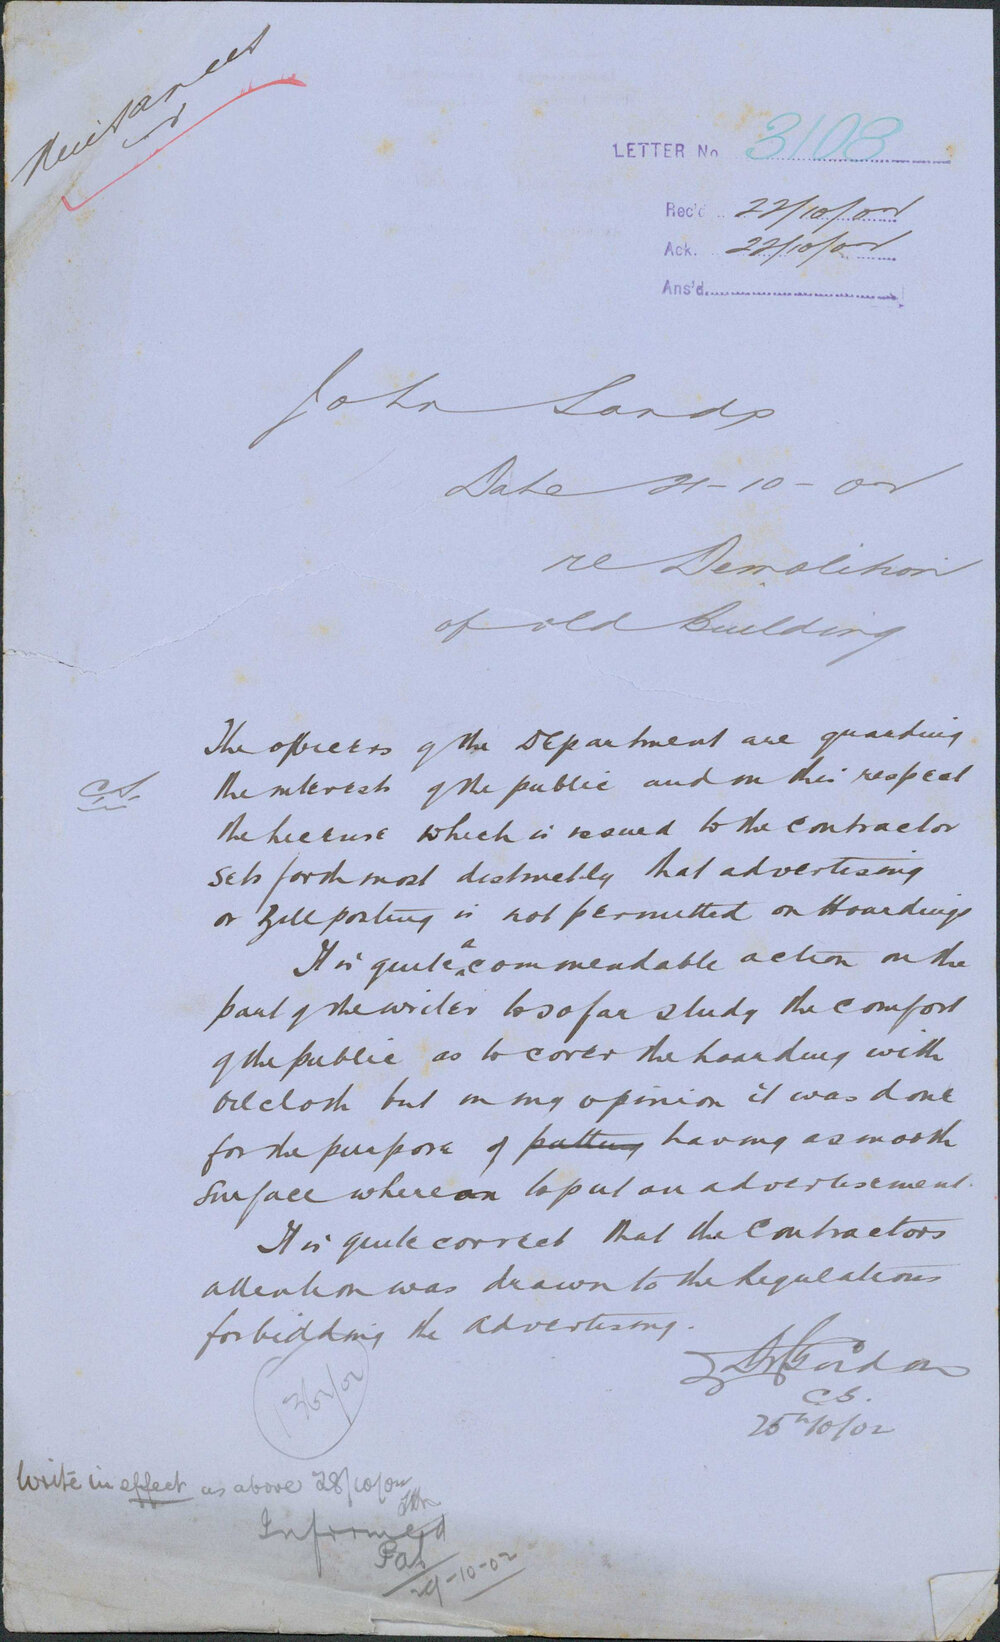 Nuisances
LETTER No 3108
Rec'd 22/10/02
Ack. 22/10/02
Ans'd
John Sands
Date 21-10-02
re Demolition
of old Building
C.S.
The officers of the Department are guarding
the interests of the public and in this respect
the license which is issued to the contractor
sets forth most distinctly that advertising
or Bill posting is not permitted on Hoardings
It is quite a commendable action on the
part of the writer to so far study the comfort
of the public as to cover the hoarding with
oilcloth but in my opinion it was done
for the purpose of putting having a smooth
surface whereon to put an advertisement.
It is quite correct that the Contractors
attention was drawn to the Regulations
forbidding the advertising.
Gordon
C.S.
25th/10/02
Write in effect as above 28/10/02
Informed
29-10-02